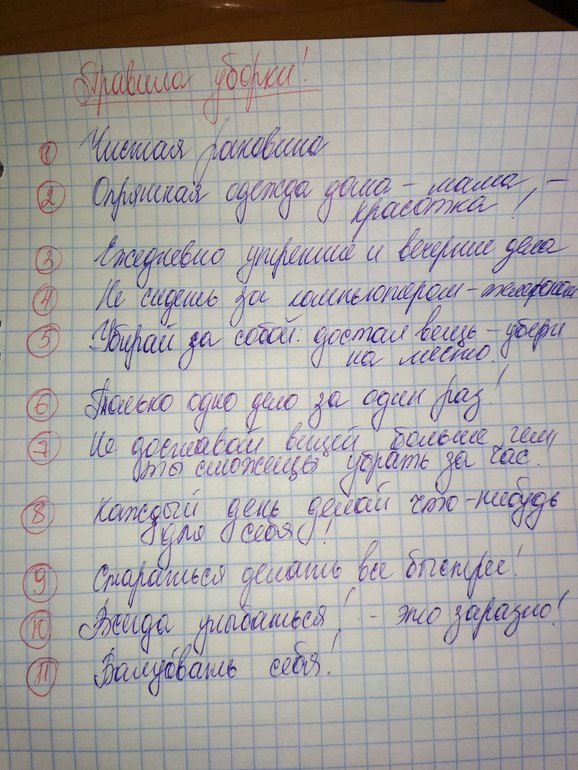 Правила уборки!
1 Чистая раковина
2 Опрятная одежда дома - мама -
красотка!
3 Ежедневно утренние и вечерние дела
4 Не сидеть за компьютером -
5 Убирай за собой: достал вещь - убери
на место.
6 Только одно дело за один раз!
7 Не доставай вещей больше чем
ты сможешь убрать за час.
8 Каждый день делай что-нибудь
для себя!
9 Стараться делать все быстрее!
10 Всегда улыбаться! - это заразно!
11 Баловать себя!